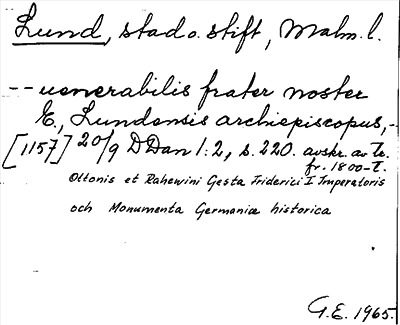 Lund, stad o. stift, Malm. l.
-- uenerabilis frater noster
E., Lundensis archiepiscopus, --
[1157] 20/9 DDan 1:2, s. 220. avskr. av tr.
fr. 1800-t.
Ottonis et Rahewini Gesta Friderici I Imperatoris
och Monumenta Germaniæ historica
G.E. 1965.